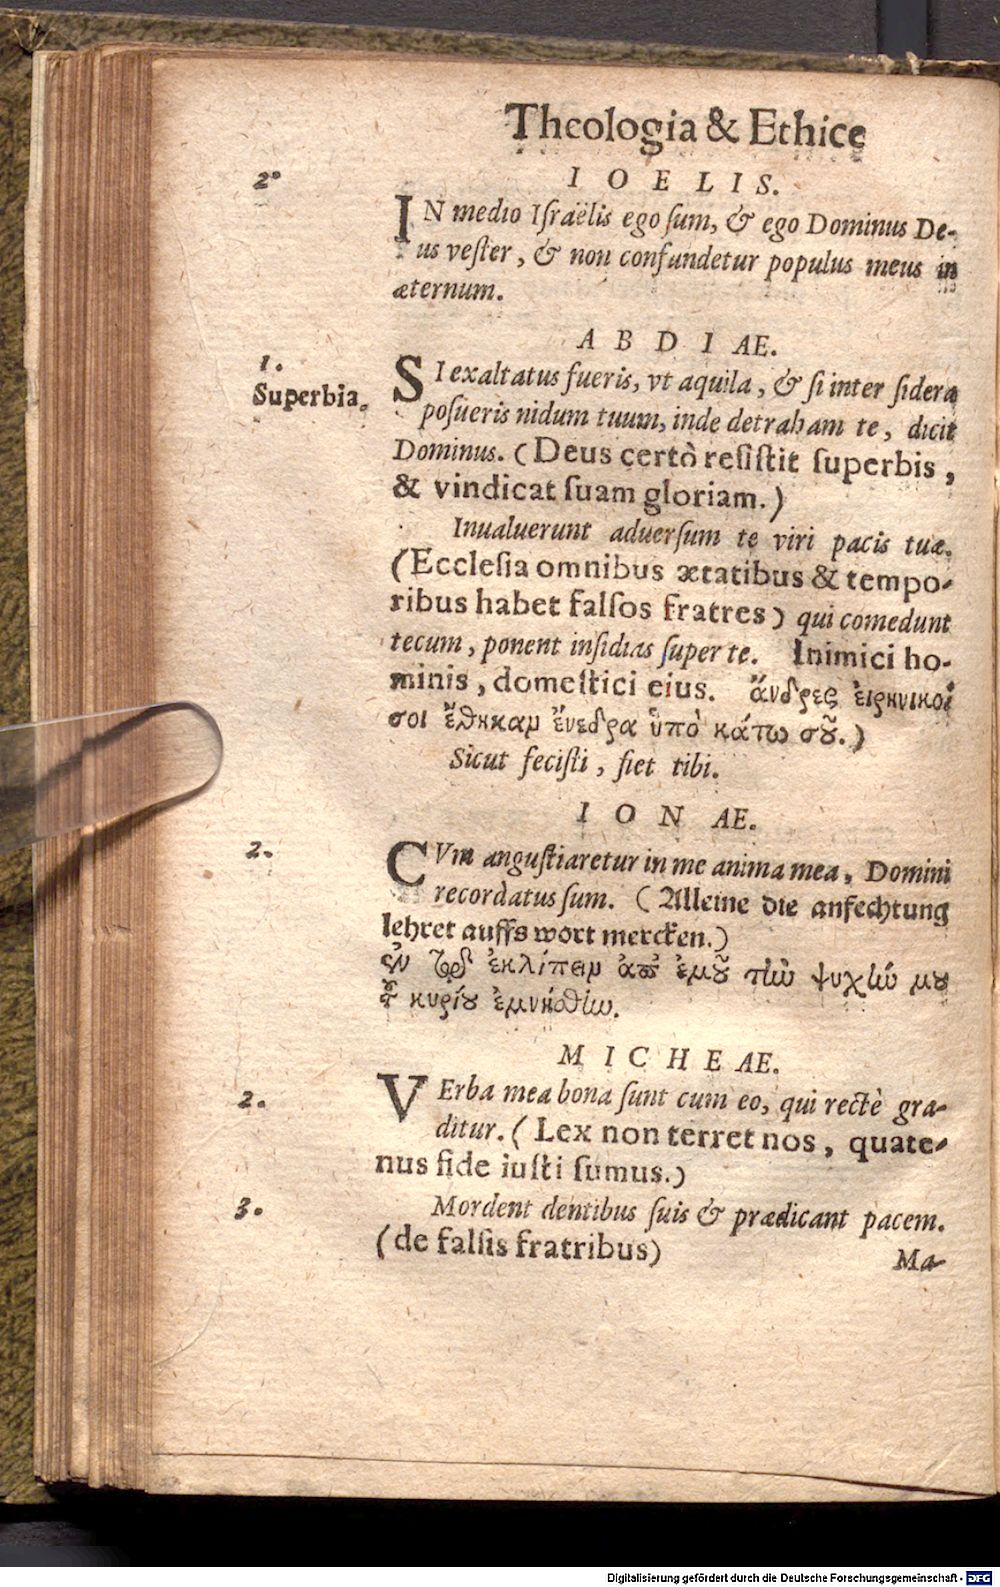 Theologia & Ethice
I O E L I S.
2°
IN medio Iſraëlis ego ſum, & ego Dominus De-
us veſter, & non confundetur populus meus in
æternum.
A B D I AE.
1.
Superbia.
SI exaltatus fueris, vt aquila, & ſi inter ſidera
poſueris nidum tuum, inde detraham te, dicit
Dominus. (Deus certò reſiſtit ſuperbis,
& vindicat ſuam gloriam.)
Inualuerunt aduerſum te viri pacis tuæ.
(Eccleſia omnibus ætatibus & tempo-
ribus habet falſos fratres) qui comedunt
tecum, ponent inſidias ſuper te. Inimici ho-
minis, domeſtici eius. ἄνδρες εἰρηνικοί
σοι ἔθηκαμ ἔνεδρα ὑπὸ κάτω σοῦ.)
Sicut feciſti, fiet tibi.
I O N AE.
2.
CVm anguſtiaretur in me anima mea, Domini
recordatus ſum. (Alleine die anfechtung
lehret auffs wort mercken.)
ἐν τῷ ἐκλίπειμ ἀπ' ἐμοῦ τὴν ψυχήν μου
τοῦ κυρίου ἐμνήσθην.
M I C H E AE.
2.
VErba mea bona ſunt cum eo, qui rectè gra-
ditur. (Lex non terret nos, quate-
nus fide iuſti ſumus.)
3.
Mordent dentibus ſuis & prædicant pacem.
(de falſis fratribus)
Ma-
Digitalisierung gefördert durch die Deutsche Forschungsgemeinschaft - DFG